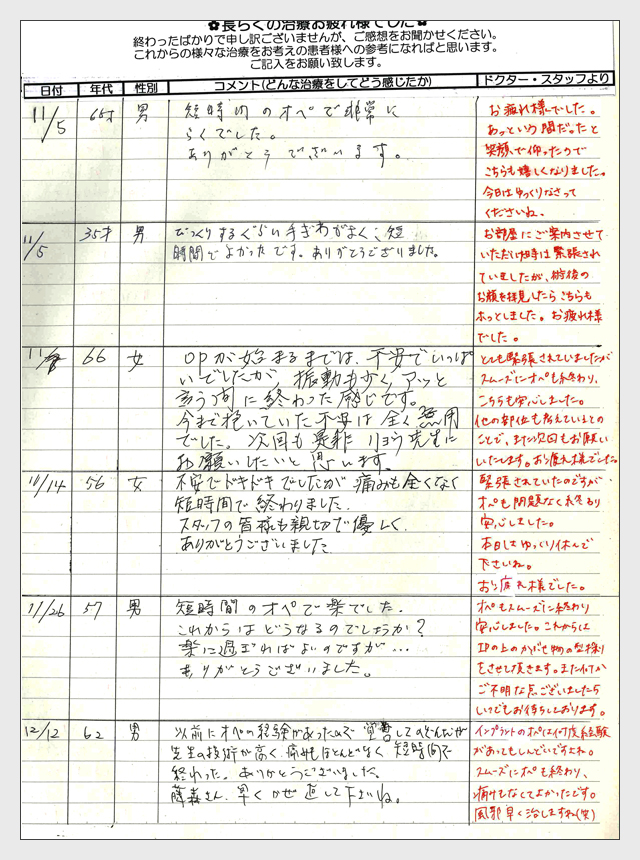 ✿長らくの治療お疲れ様でした✿
終わったばかりで申し訳ございませんが、ご感想をお聞かせください。
これからの様々な治療をお考えの患者様への参考になればと思います。
ご記入をお願い致します。
日付 年代 性別 コメント(どんな治療をしてどう感じたか) ドクター・スタッフより
11/5 65才 男
短時間のオペで非常に
らくでした。
ありがとうございます。
お疲れ様でした。
あっという間だったと
笑顔で仰ったので
こちらも嬉しくなりました。
今日はゆっくりなさって
くださいね。
11/5 35才 男
びっくりするぐらい手ぎわがよく、短
時間でよかったです。ありがとうございました。
お部屋にご案内させて
いただいた時は緊張され
ていましたが、術後の
お顔を拝見したらこちらも
ホッとしました。お疲れ様
でした。
66 女
opが始まるまでは、不安でいっぱ
いでしたが、振動も少くアッと
言う間に終わった感じです。
今まで抱いていた不安は全く無用
でした。次回も是非リョウ先生に
お願いしたいと思います。
とても緊張されていましたが
スムーズにオペも終わり、
こちらも安心しました。
他の部位も考えているとの
ことで、また次回もお願い
いたします。お疲れ様でした。
11/14 56 女
不安でドキドキでしたが痛みも全くなく
短時間で終わりました。
スタッフの皆様も親切で優しく
ありがとうございました
緊張されていたのですが
オペも問題なく終わり
安心しました。
本日はゆっくり休んで
下さいね。
お疲れ様でした。
11/26 57 男
短時間のオペで楽でした.
これからはどうなるのでしょうか?
楽に過ぎればよいのですが…
ありがとうございました。
オペもスムーズに終わり
安心しました。これからは
IPの上のかぶせ物の型採り
をさせて頂きます。また何か
ご不明な点ございましたら
いつでもお待ちしております。
12/12 62 男
以前にオペの経験があったので覚悟して
先生の技術が高く、痛みもほとんどなく短時間で
終わった。ありがとうございました。
藤森さん、早くかぜ直して下さいね。
インプラントのオペは何度経験
があってもしんどいですよね。
スムーズにオペも終わり、
痛みもなくてよかったです。
風邪早く治しますね(笑)